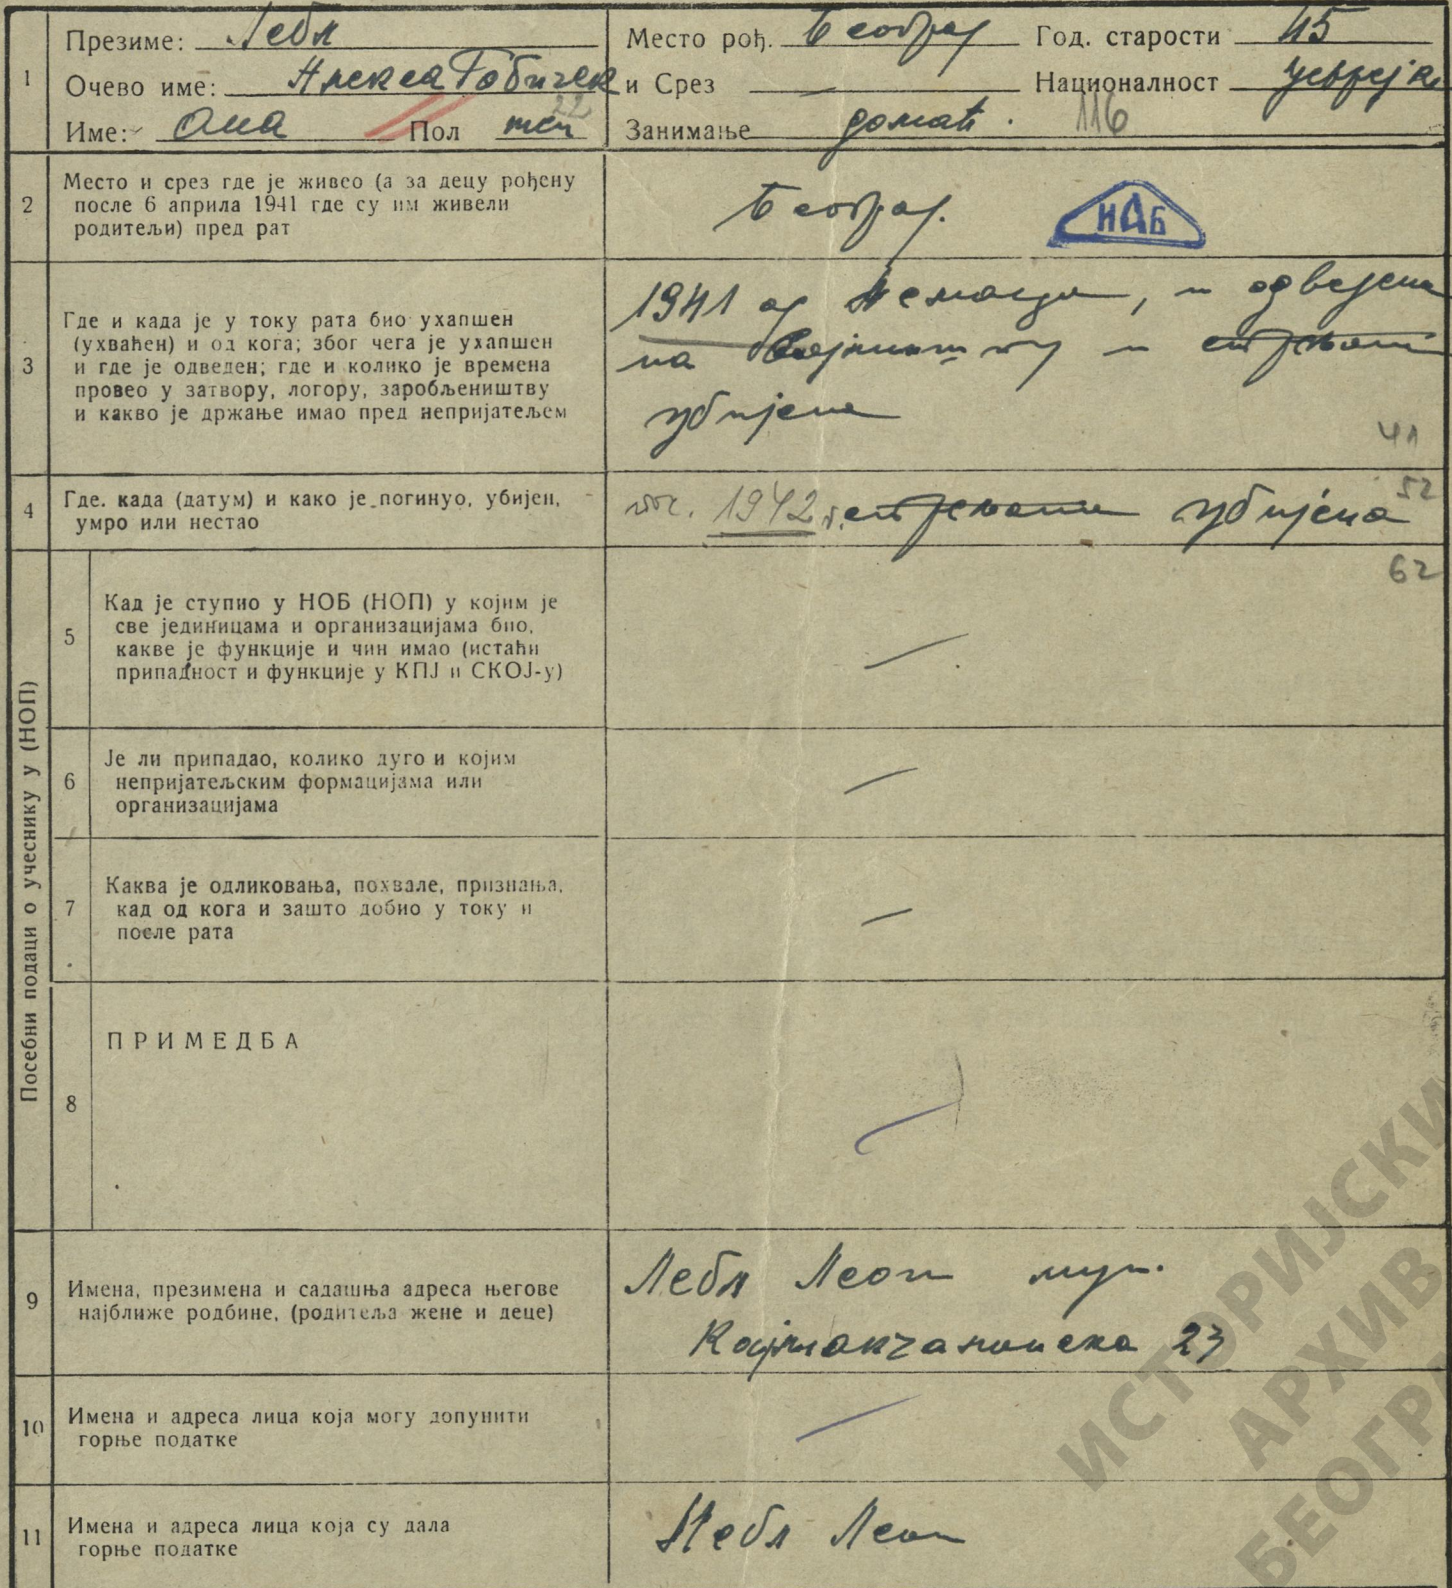 1
Презиме: Лебл
Место рођ. Београд Год. старости 45
Очево име: Алекса Робичек
и Срез — Националност Јеврејка
Име: Ана Пол жен 22
Занимање домаћ. 116
2
Место и срез где је живео (а за децу рођену
после 6 априла 1941 где су им живели
родитељи) пред рат
Београд.
НАБ
3
Где и када је у току рата био ухапшен
(ухваћен) и од кога; због чега је ухапшен
и где је одведен; где и колико је времена
провео у затвору, логору, заробљеништву
и какво је држање имао пред непријатељем
1941 од Немаца, и одведена
на Сајмиште и стрељана
убијена
41
4
Где. када (датум) и како је погинуо, убијен,
умро или нестао
1942 г. стрељана убијена
52
Посебни подаци о учеснику у (НОП)
5
Кад је ступио у НОБ (НОП) у којим је
све јединицама и организацијама био,
какве је функције и чин имао (истаћи
припадност и функције у КПЈ и СКОЈ-у)
—
62
6
Је ли припадао, колико дуго и којим
непријатељским формацијама или
организацијама
—
7
Каква је одликовања, похвале, признања,
кад од кога и зашто добио у току и
после рата
—
8
ПРИМЕДБА
—
9
Имена, презимена и садашња адреса његове
најближе родбине, (родитеља жене и деце)
Лебл Леон муж.
Кајмакчаланска 23
10
Имена и адреса лица која могу допунити
горње податке
—
11
Имена и адреса лица која су дала
горње податке
Лебл Леон
ИСТОРИЈСКИ
АРХИВ
БЕОГРА